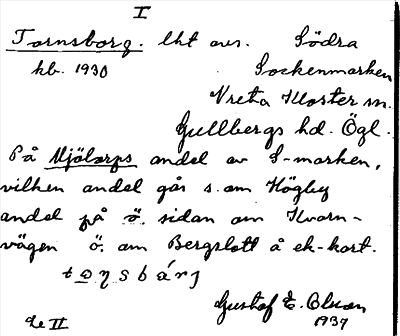 I
Tornsborg. lht avs. Södra
kb. 1930 Sockenmarken
Vreta Kloster sn.
Gullbergs hd. Ögl.
På Mjölorps andel av S-marken,
vilken andel går s. om Högby
andel på ö. sidan om Kvarn-
vägen ö. om Bergslott å ek-kart.
Gustaf E. Olsson
Se II 1937